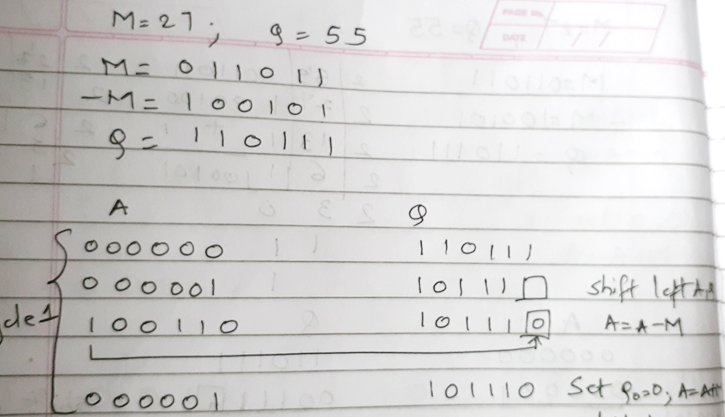 PAGE No.
DATE
M = 27 ; Q = 55
M = 011011
-M = 100101
Q = 110111
A Q
000000 110111
000001 10111□ shift left
100110 101110 A = A-M
000001 101110 Set Q₀=0;